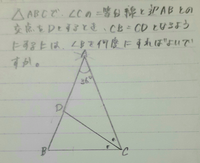 △ABCで、∠Cの二等分線と辺ABとの
交点をDとするとき、CB=CDとなるよう
にするには、∠Bを何度にすればよいで
すか。
A
36°
D
B
C